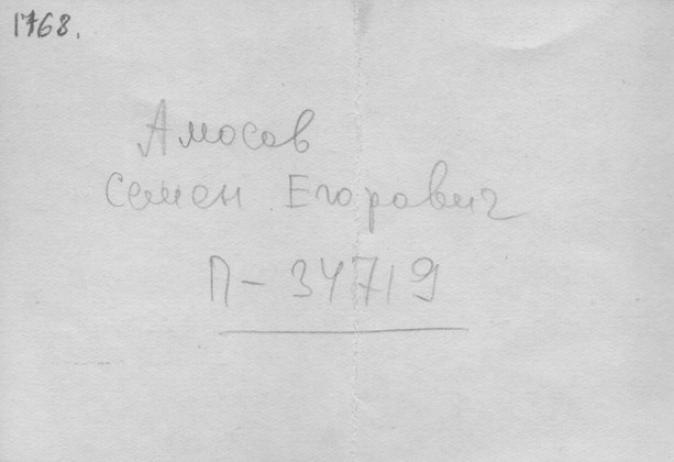 1768.
Амосов
Семен Егорович
П-34719